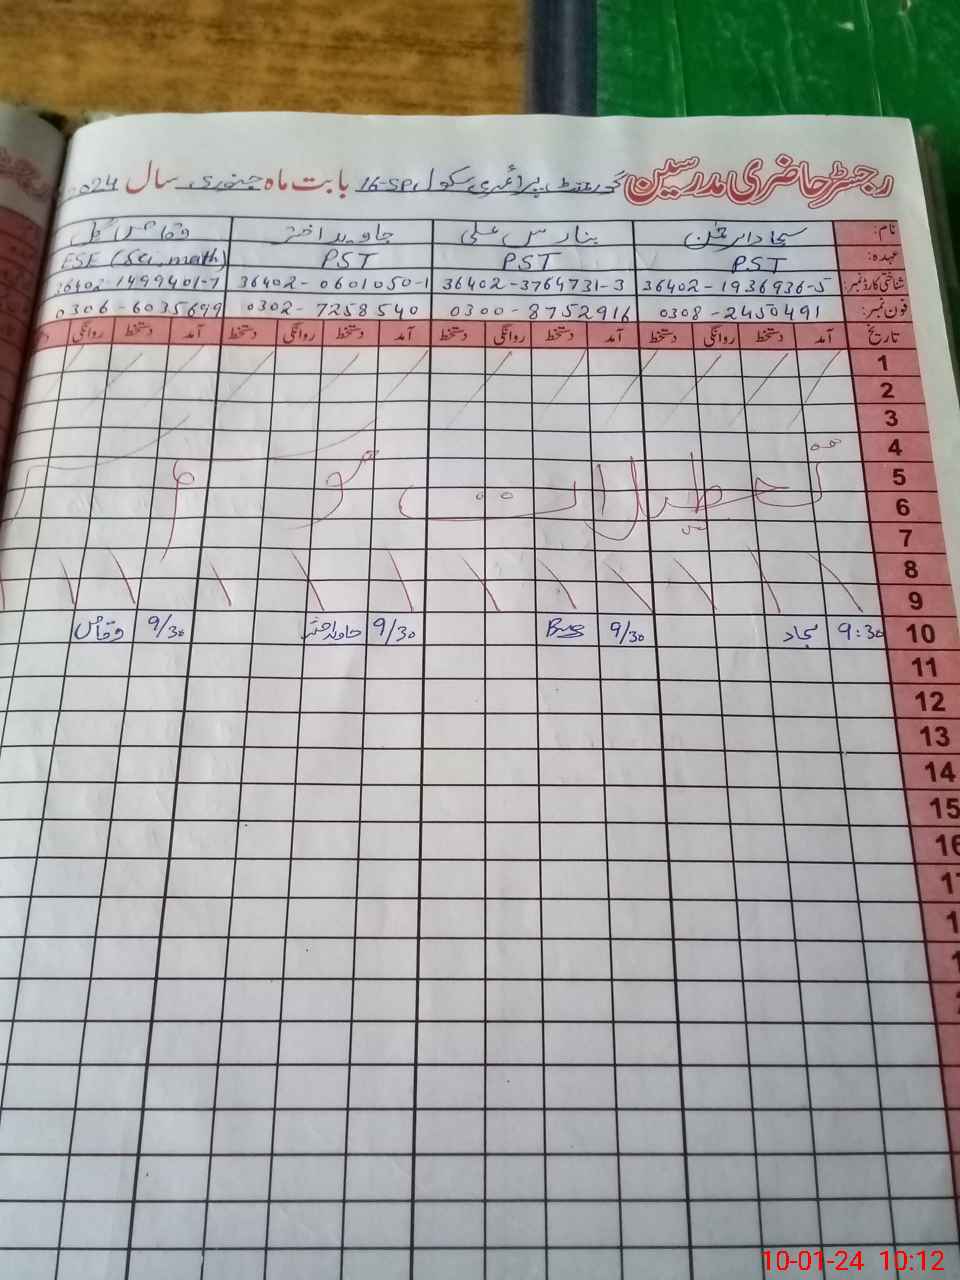 رجسٹر حاضری مدرسین گورنمنٹ پرائمری سکول 16-SP بابت ماہ جنوری سال 2024
نام: بنارس علی جاوید اختر وقاص گل
عہدہ: PST PST PST ESE (Sci, math)
شناختی کارڈ نمبر: 36402-1936936-5 36402-3764731-3 36402-0601050-1 36402-1499401-7
فون نمبر: 0308-2450491 0300-8752916 0302-7258540 0306-6035699
تاریخ آمد دستخط روانگی دستخط آمد دستخط روانگی دستخط آمد دستخط روانگی دستخط آمد دستخط روانگی
1
2
3
4
5
6
تعطیلات موسم
7
8
9
10 9:30 سجاد 9/30 9/30 جاوید اختر 9/30 وقاص
11
12
13
14
15
16
10-01-24 10:12